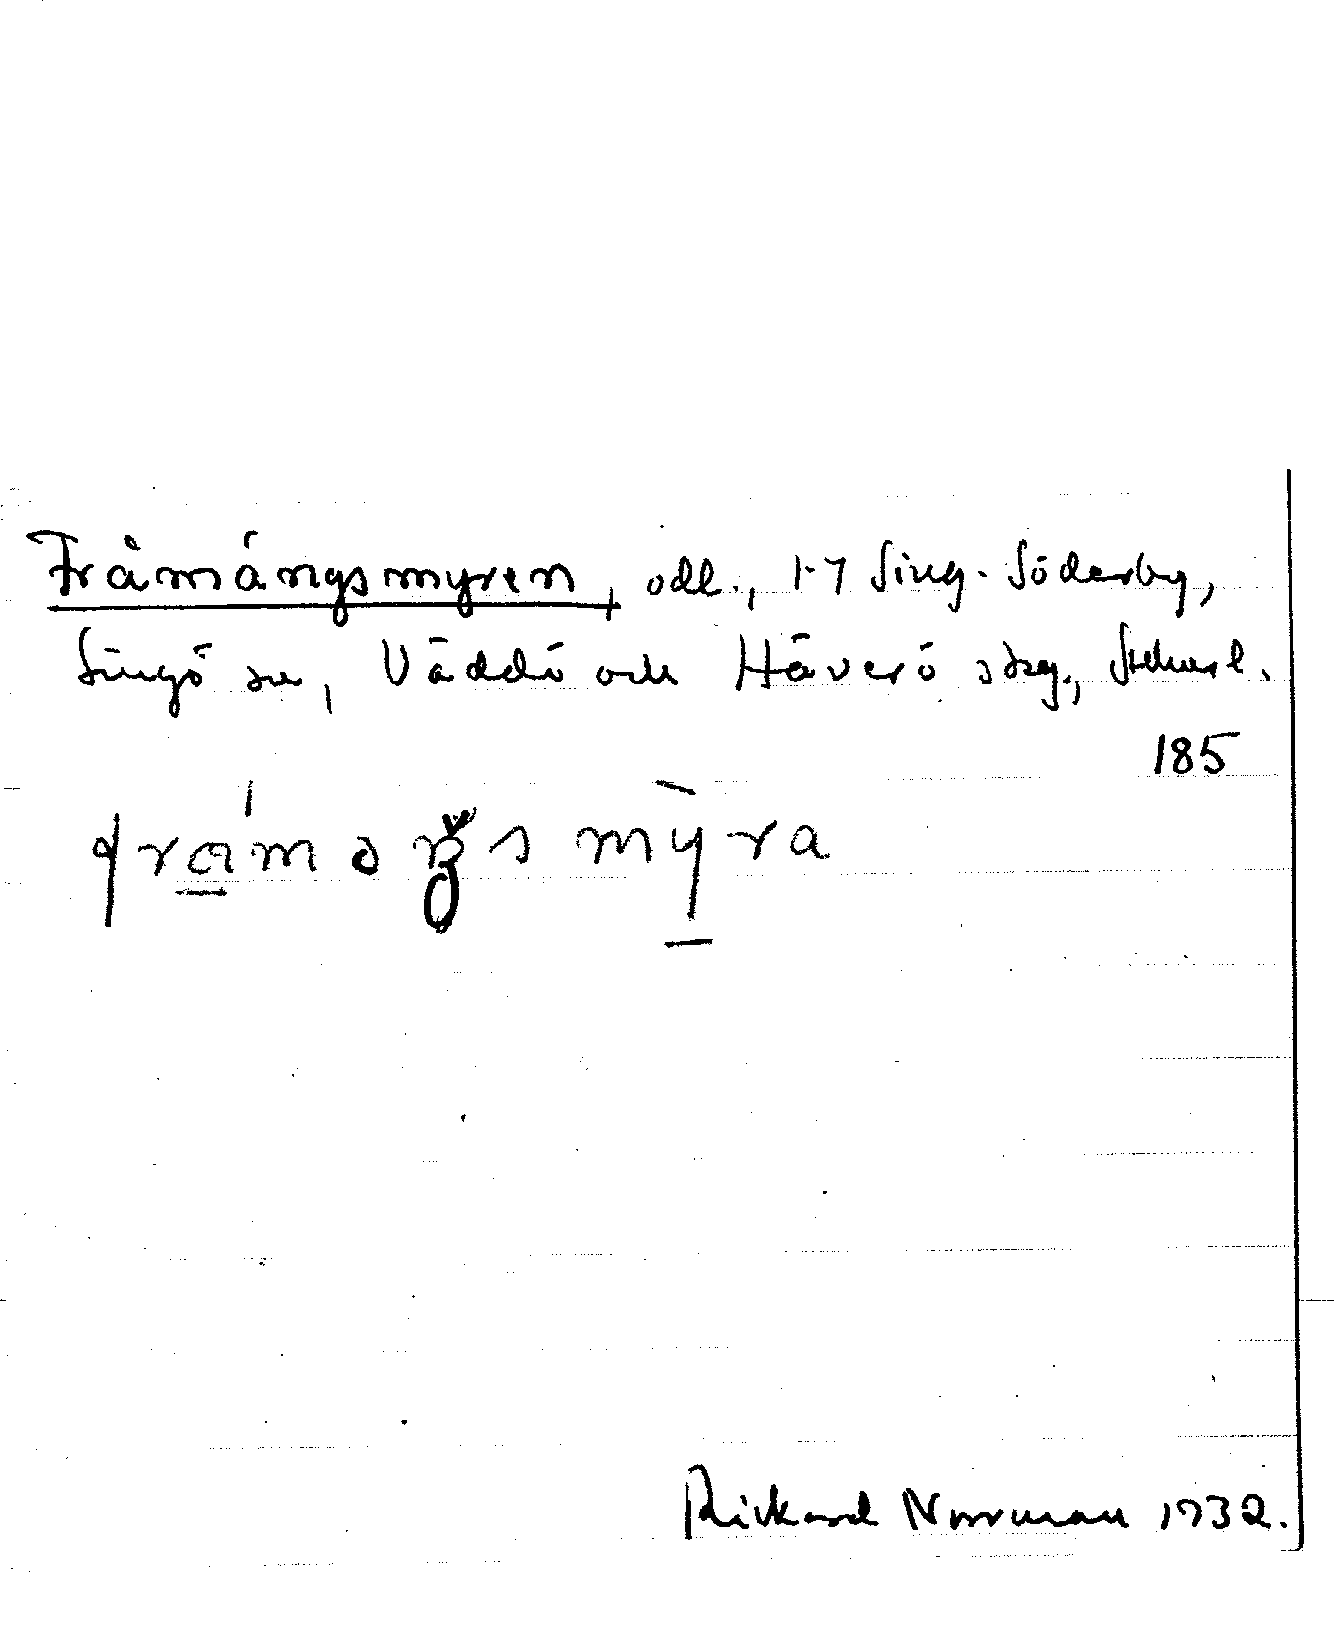 Fråmångsmyren, odl., 1-7 Sing-Söderby,
Singö sn, Väddö och Häverö skg., Sthmsl.
185
myra
Rickard Norrman 1932.